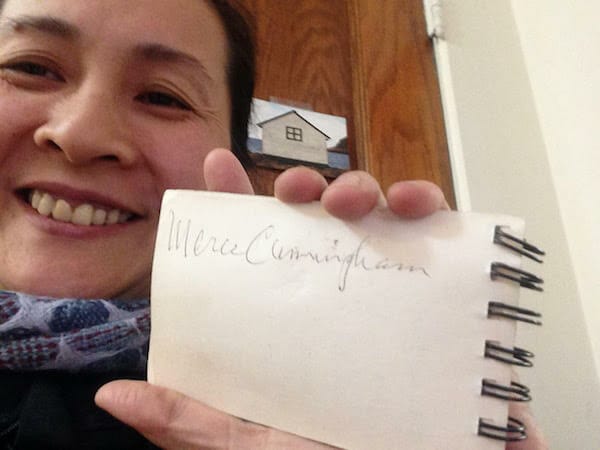 Merce Cunningham